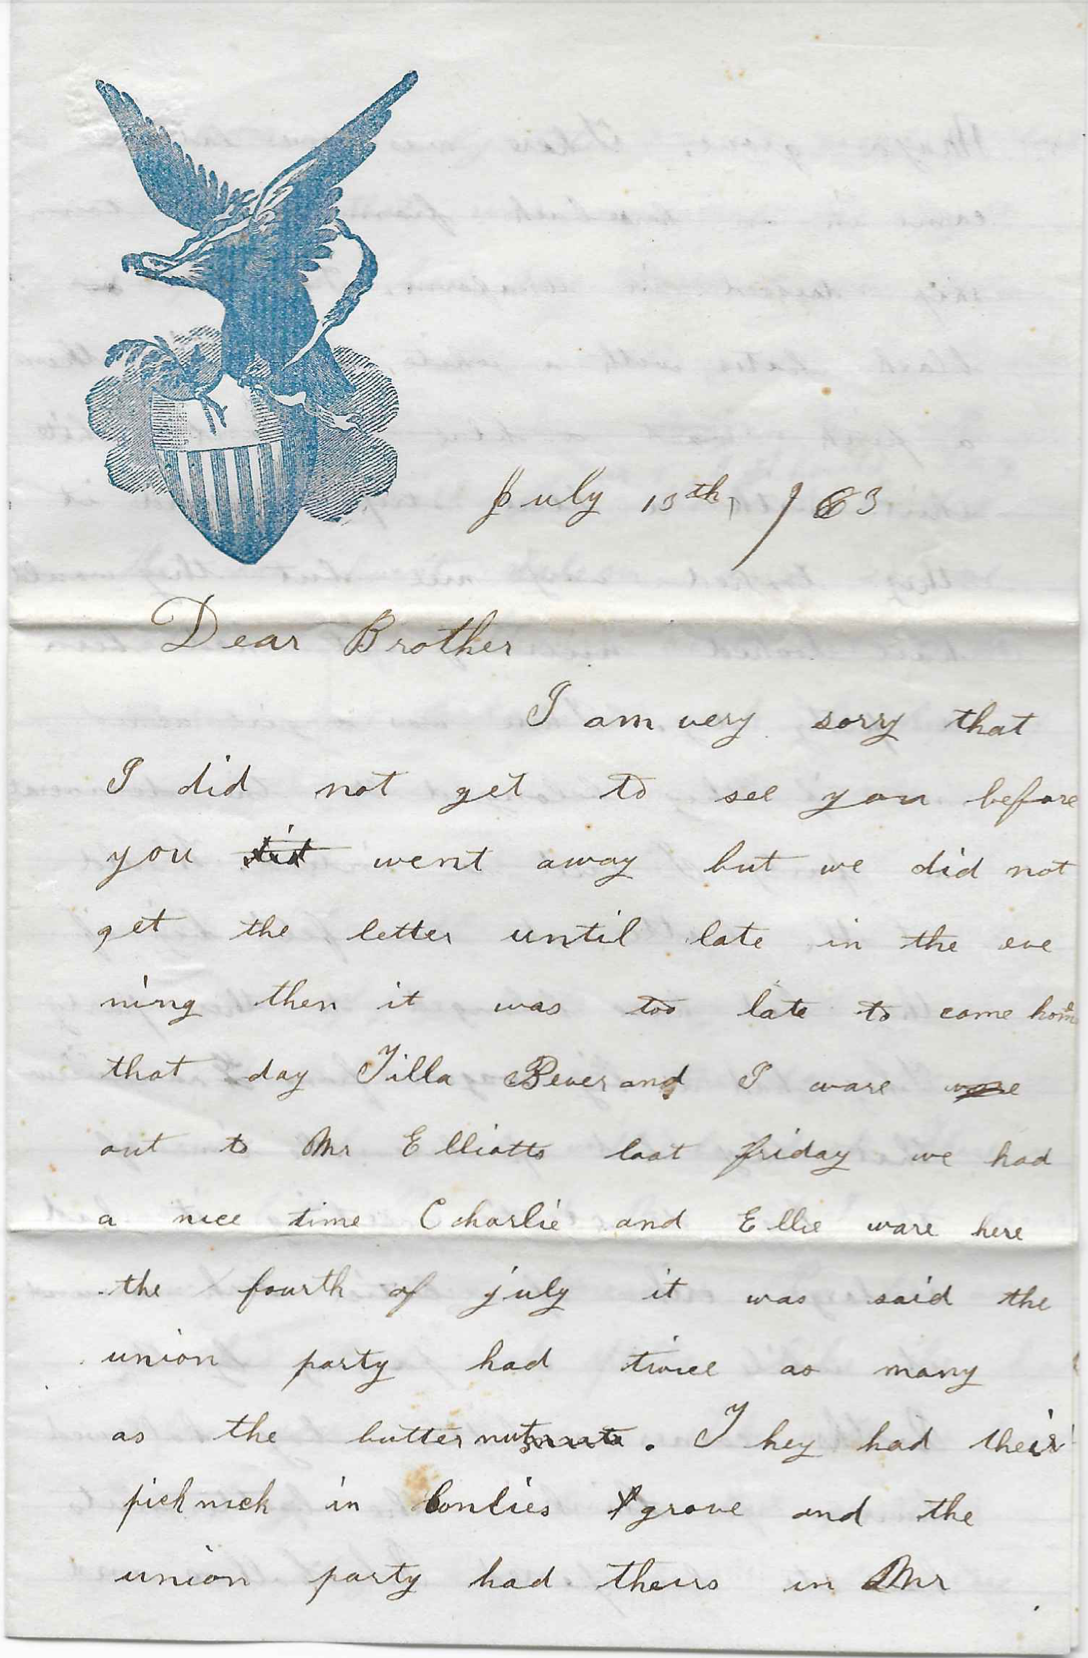 July 13th / 63
Dear Brother
I am very sorry that
I did not get to see you before
you went away but we did not
get the letter until late in the eve
ning then it was too late to come home
that day Tilla Bever and I ware
out to Mr Elliotts last friday we had
a nice time Ccharlie and Ellie ware here
the fourth of july it was said the
union party had twice as many
as the butternut . They had their
picknick in grove and the
union party had theirs in Mr